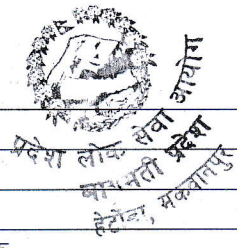 प्रदेश लोक सेवा आयोग
बागमती प्रदेश
हेटौंडा, मकवानपुर